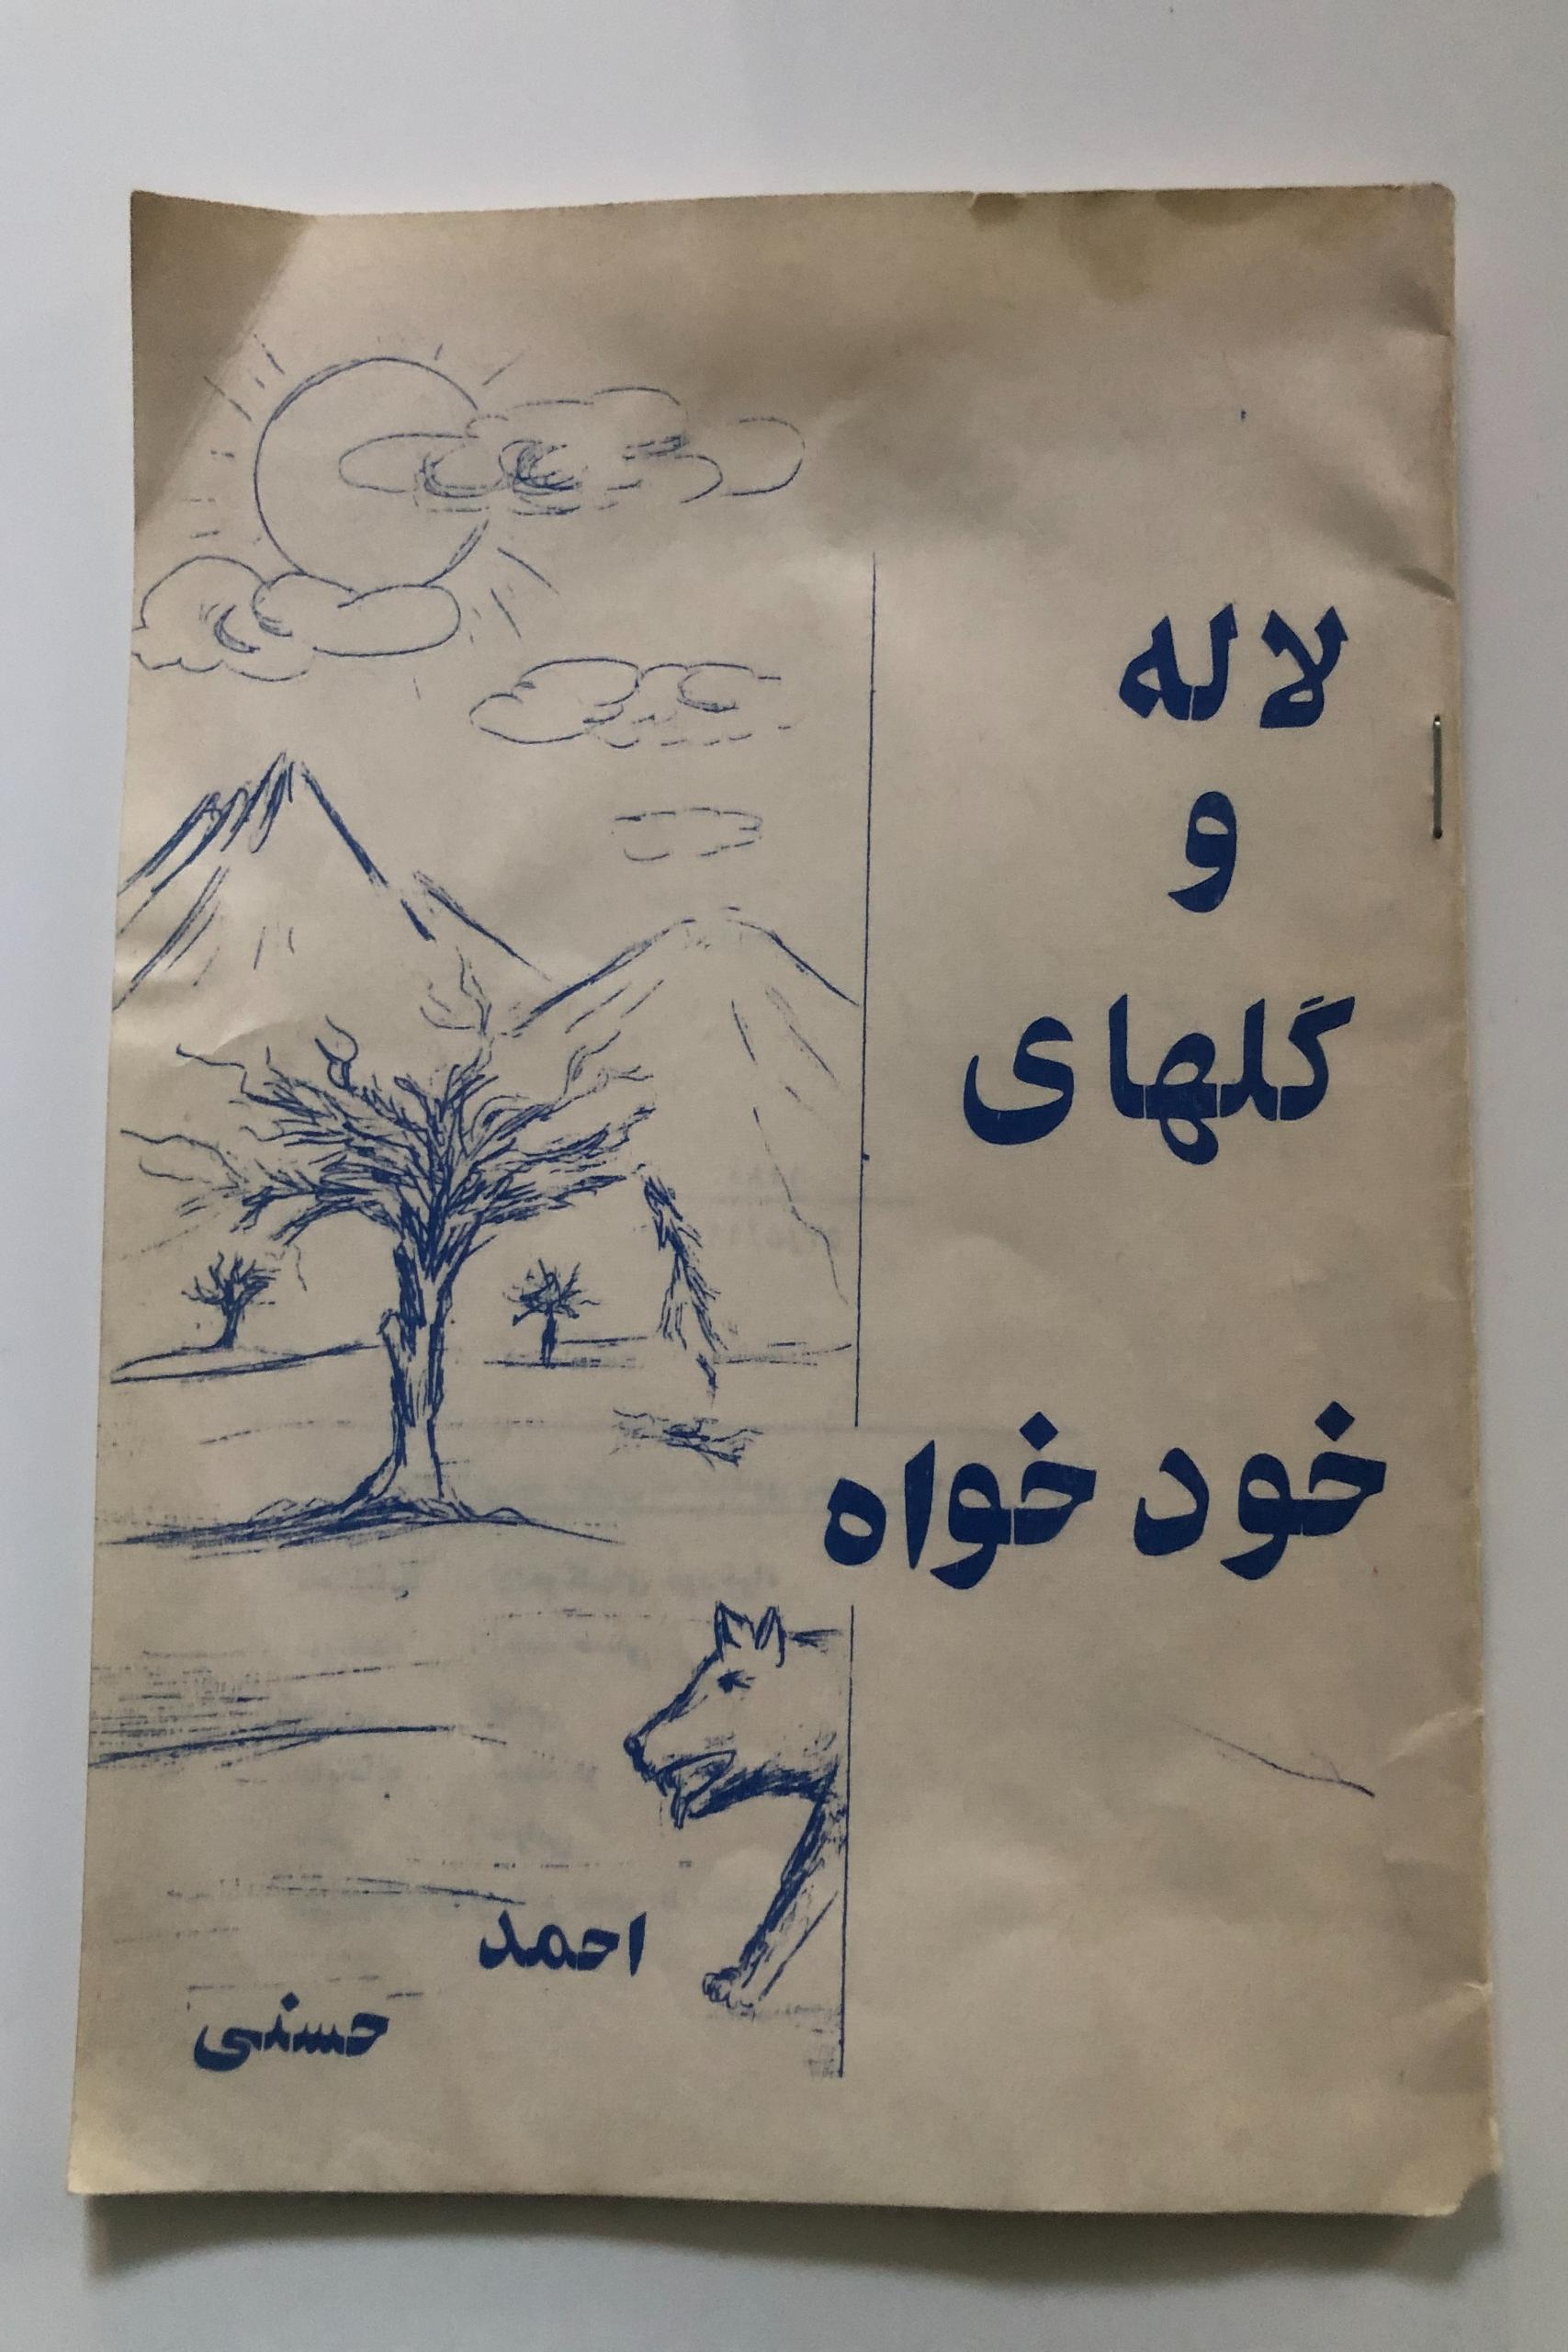 لاله
و
گلهای
خود خواه
احمد
حسنی